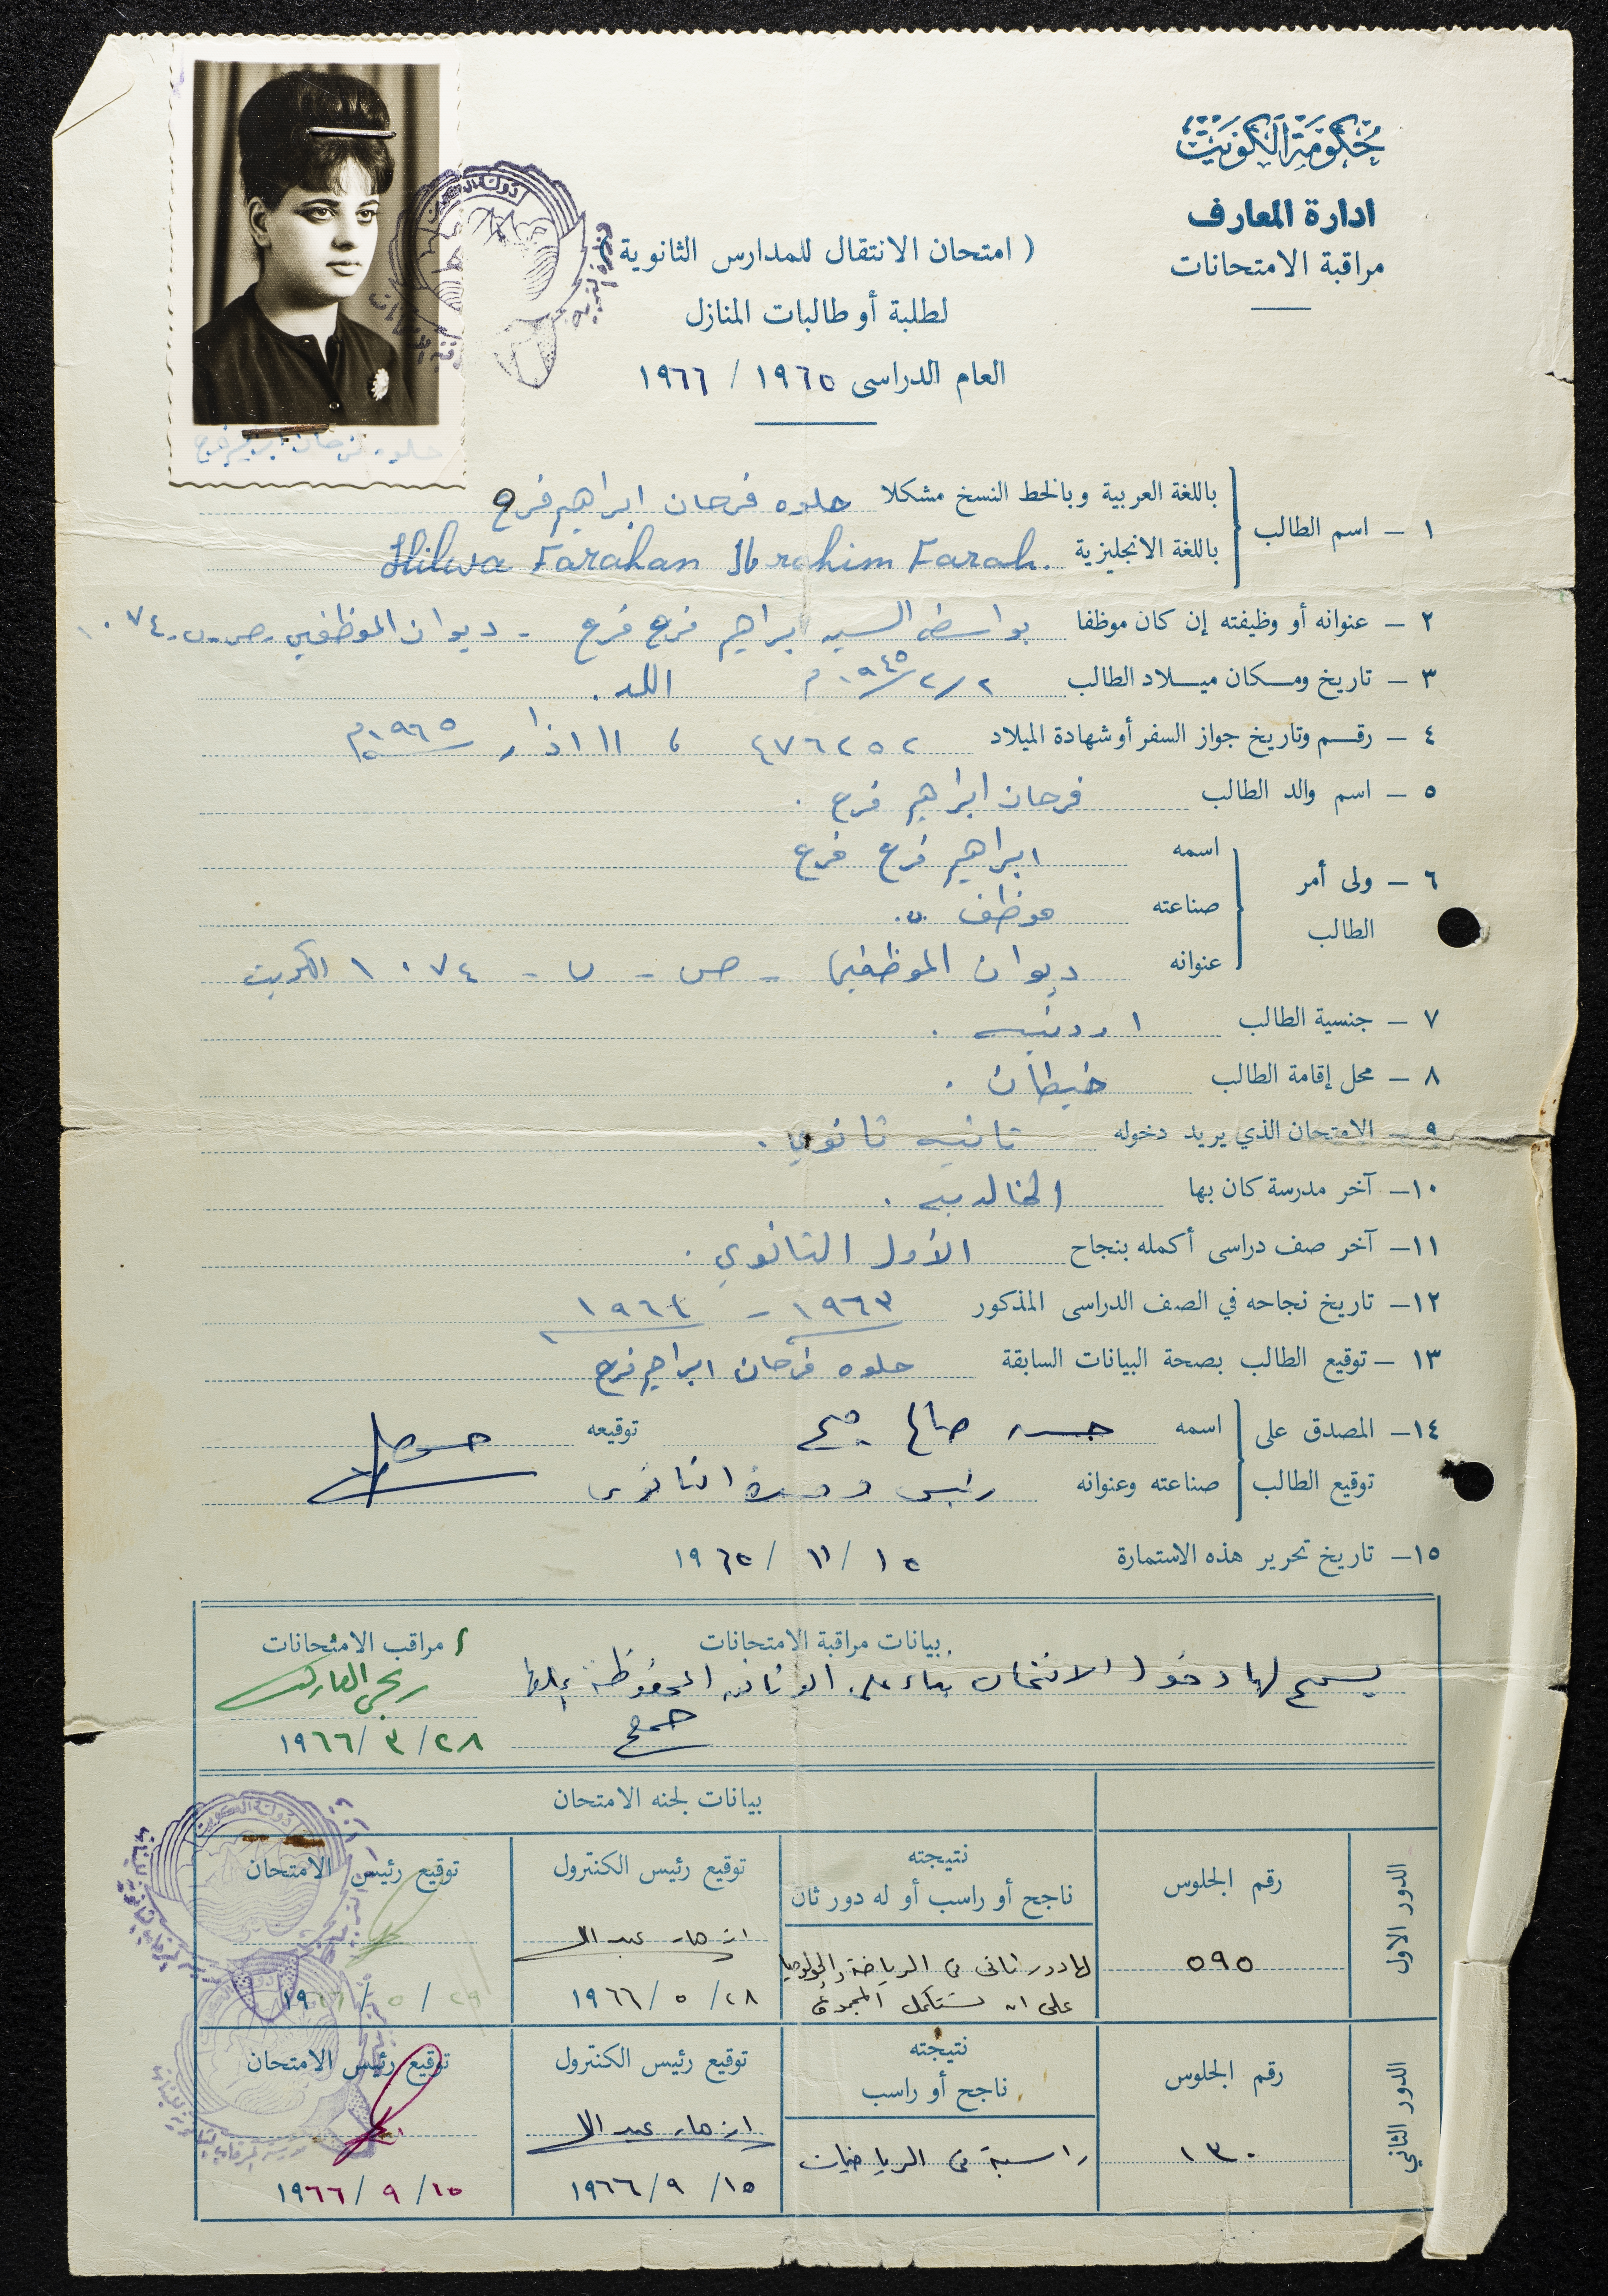 حكومة الكويت
ادارة المعارف
مراقبة الامتحانات
( امتحان الانتقال للمدارس الثانوية )
لطلبة أو طالبات المنازل
العام الدراسى ١٩٦٥ / ١٩٦٦
حلوه فرحان ابراهيم فرح
١ — اسم الطالب
باللغة العربية وبالخط النسخ مشكلا حلوه فرحان ابراهيم فرح
باللغة الانجليزية Hilwa Farahan Ibrahim Farah.
٢ — عنوانه أو وظيفته إن كان موظفا بواسطة السيد ابراهيم فرح فرح - ديوان الموظفين ص.ب. ١٠٧٤
٣ — تاريخ ومكان ميلاد الطالب ٢/٢/١٩٤٥م اللد.
٤ — رقم وتاريخ جواز السفر أو شهادة الميلاد ٤٧٦٢٥٢ ، ١١ اذار ١٩٦٥م
٥ — اسم والد الطالب فرحان ابراهيم فرح .
٦ — ولى أمر الطالب
اسمه ابراهيم فرح فرح
صناعته موظف
عنوانه ديوان الموظفين - ص - ب - ١٠٧٤ الكويت
٧ — جنسية الطالب اردنيه .
٨ — محل إقامة الطالب خيطان .
٩ — الامتحان الذي يريد دخوله ثانيه ثانوي .
١٠— آخر مدرسة كان بها الخالديه .
١١— آخر صف دراسى أكمله بنجاح الأول الثانوي .
١٢— تاريخ نجاحه في الصف الدراسى المذكور ١٩٦٣ - ١٩٦٤
١٣ — توقيع الطالب بصحة البيانات السابقة حلوه فرحان ابراهيم فرح
١٤— المصدق على توقيع الطالب
اسمه حسن صالح توقيعه
صناعته وعنوانه رئيس الثانوى
١٥— تاريخ تحرير هذه الاستمارة ١٥ / ١١ / ١٩٦٥
بيانات مراقبة الامتحانات
يسمح لها دخول الامتحان بناء على الوثائق المحفوظة بملفها
مراقب الامتحانات
٢٨ / ٣ / ١٩٦٦
بيانات لجنه الامتحان
الدور الاول
رقم الجلوس
٥٩٥
نتيجته
ناجح أو راسب أو له دور ثان
لها دور ثانى فى الرياضة والجولوجيا
على ان تستكمل المجموع
توقيع رئيس الكنترول
٢٨ / ٥ / ١٩٦٦
توقيع رئيس الامتحان
٢٩ / ٥ / ١٩٦٦
الدور الثاني
رقم الجلوس
١٣٠
نتيجته
ناجح أو راسب
راسبة فى الرياضيات
توقيع رئيس الكنترول
١٥ / ٩ / ١٩٦٦
توقيع رئيس الامتحان
١٥ / ٩ / ١٩٦٦